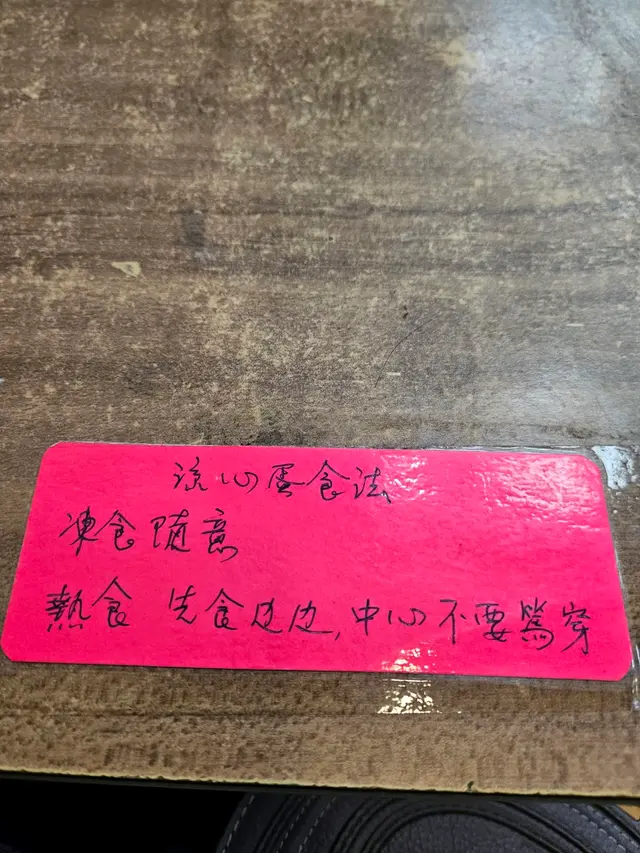 流心蛋食法
凍食隨意
熱食 先食边边,中心不要篤穿